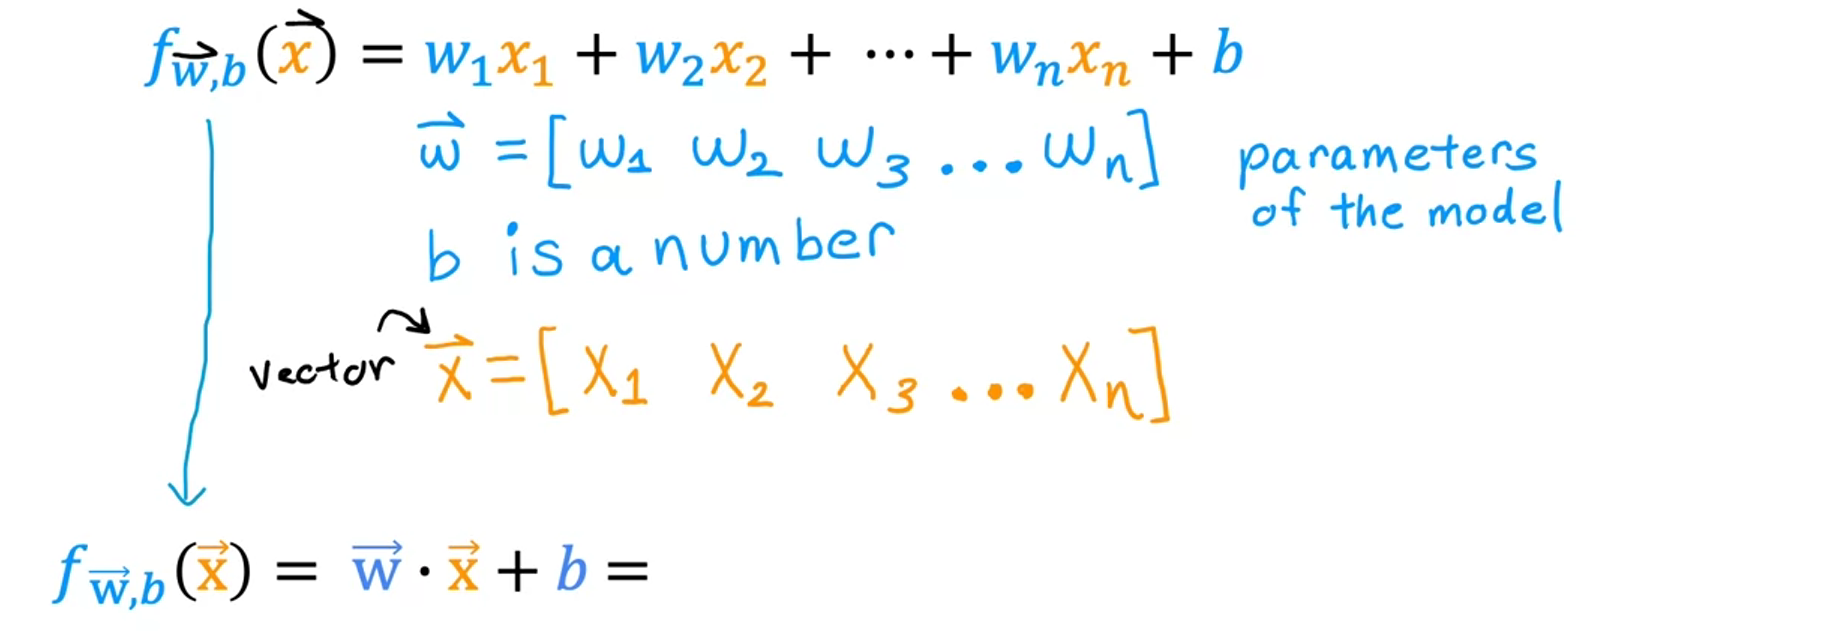 f_{\vec{w},b}(\vec{x}) = w_1x_1 + w_2x_2 + ⋯ + w_nx_n + b
\vec{w} = [w_1 w_2 w_3 ... w_n] parameters
of the model
b is a number
vector \vec{x} = [x_1 x_2 x_3 ... x_n]
f_{\vec{w},b}(\vec{x}) = \vec{w} · \vec{x} + b =